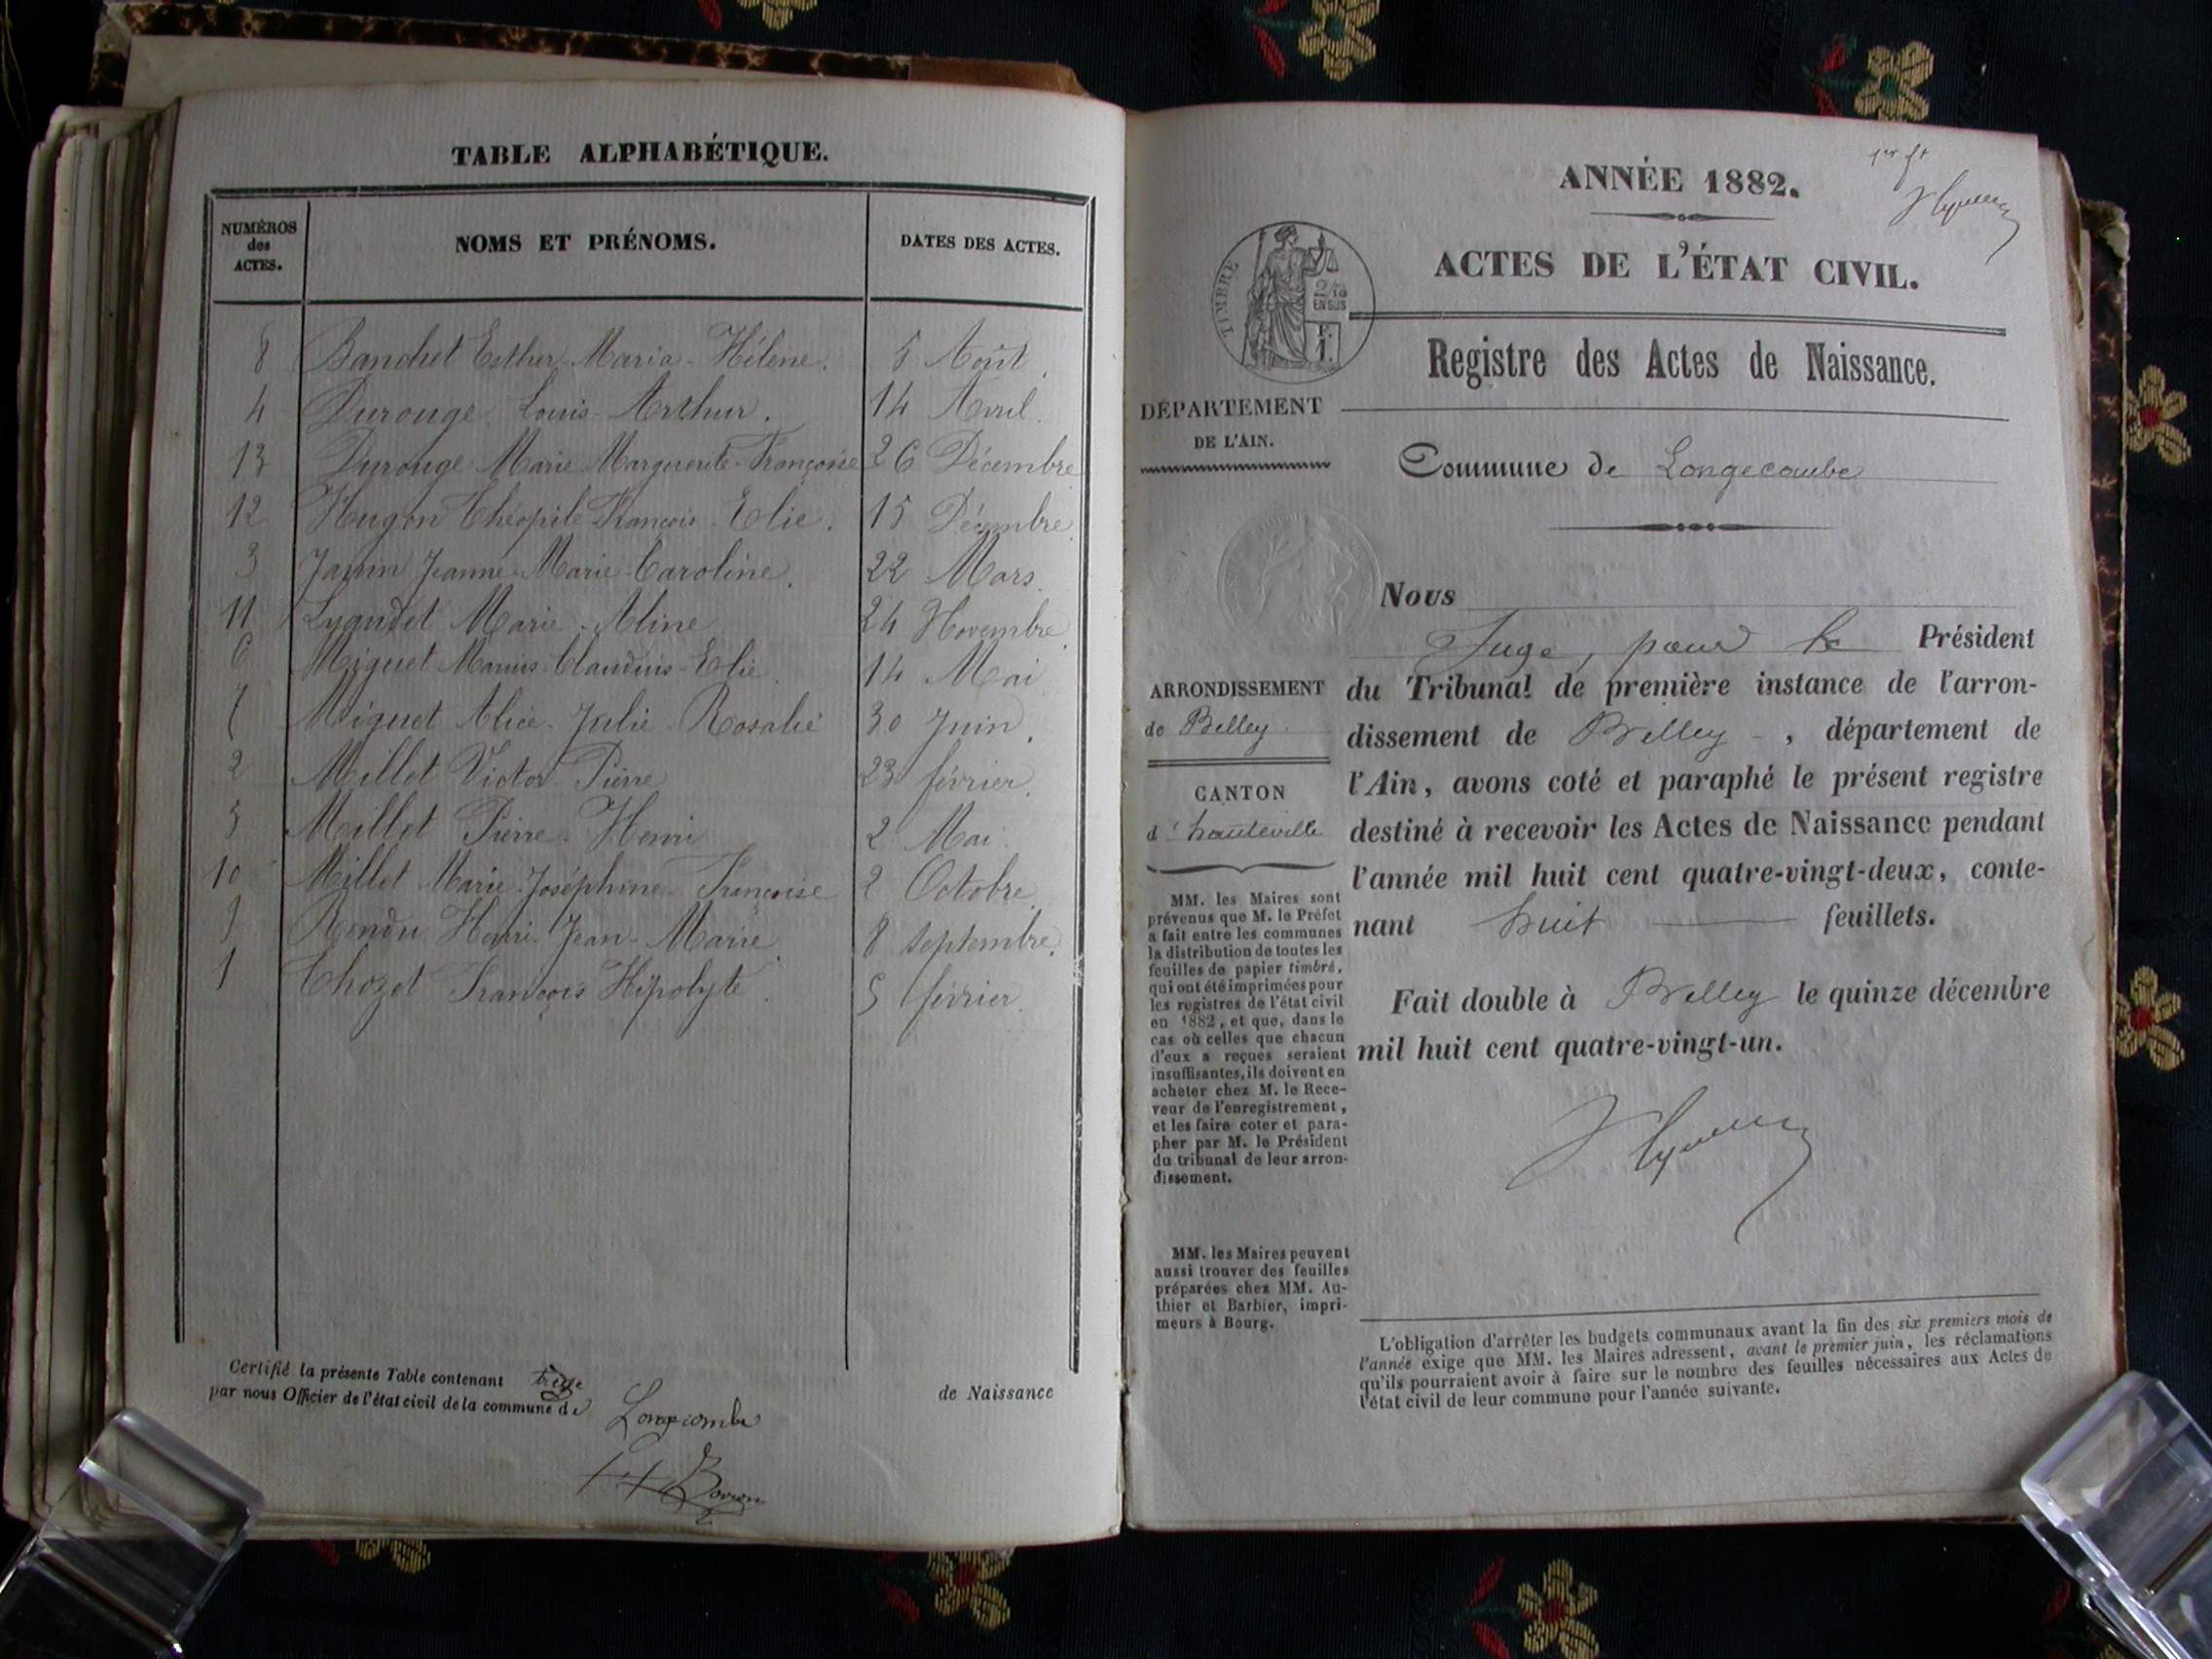 TABLE ALPHABÉTIQUE.
NUMÉROS
des
ACTES.
NOMS ET PRÉNOMS.
DATES DES ACTES.
8 Banchet Esther Maria Hélène. 5 Août.
4 Durouge Louis Arthur. 14 Avril.
13 Durouge Marie Marguerite Françoise 26 Décembre
12 Hugon Théopile François Elie. 15 Décembre
3 Janin Jeanne Marie Caroline. 22 Mars.
11 Lyaudet Marie Aline 24 Novembre
6 Miguet Marius Claudius Elie. 14 Mai
7 Miguet Alice Julie Rosalie 30 Juin.
2 Millet Victor Pierre 23 février.
5 Millet Pierre Henri 2 Mai
10 Millet Marie Joséphine Françoise 2 Octobre.
9 Rendu Henri Jean Marie 8 septembre.
1 Chozet François Hipolyte. 5 février.
Certifié la présente Table contenant treize
de Naissance
par nous Officier de l'état civil de la commune de Longecombe
1er ft
ANNÉE 1882.
ACTES DE L'ÉTAT CIVIL.
TIMBRE
2/10
EN SUS
F.
1.
Registre des Actes de Naissance.
DÉPARTEMENT
DE L'AIN.
Commune de Longecombe
Nous
Juge, pour le Président
ARRONDISSEMENT
de Belley
CANTON
d'hauteville
du Tribunal de première instance de l'arron-
dissement de Belley, département de
l'Ain, avons coté et paraphé le présent registre
destiné à recevoir les Actes de Naissance pendant
l'année mil huit cent quatre-vingt-deux, conte-
nant huit feuillets.
Fait double à Belley le quinze décembre
mil huit cent quatre-vingt-un.
MM. les Maires sont
prévenus que M. le Préfet
a fait entre les communes
la distribution de toutes les
feuilles de papier timbré,
qui ont été imprimées pour
les registres de l'état civil
en 1882, et que, dans le
cas où celles que chacun
d'eux a reçues seraient
insuffisantes, ils doivent en
acheter chez M. le Rece-
veur de l'enregistrement,
et les faire coter et para-
pher par M. le Président
du tribunal de leur arron-
dissement.
MM. les Maires peuvent
aussi trouver des feuilles
préparées chez MM. Au-
thier et Barbier, impri-
meurs à Bourg.
L'obligation d'arrêter les budgets communaux avant la fin des six premiers mois de
l'année exige que MM. les Maires adressent, avant le premier juin, les réclamations
qu'ils pourraient avoir à faire sur le nombre des feuilles nécessaires aux Actes de
l'état civil de leur commune pour l'année suivante.